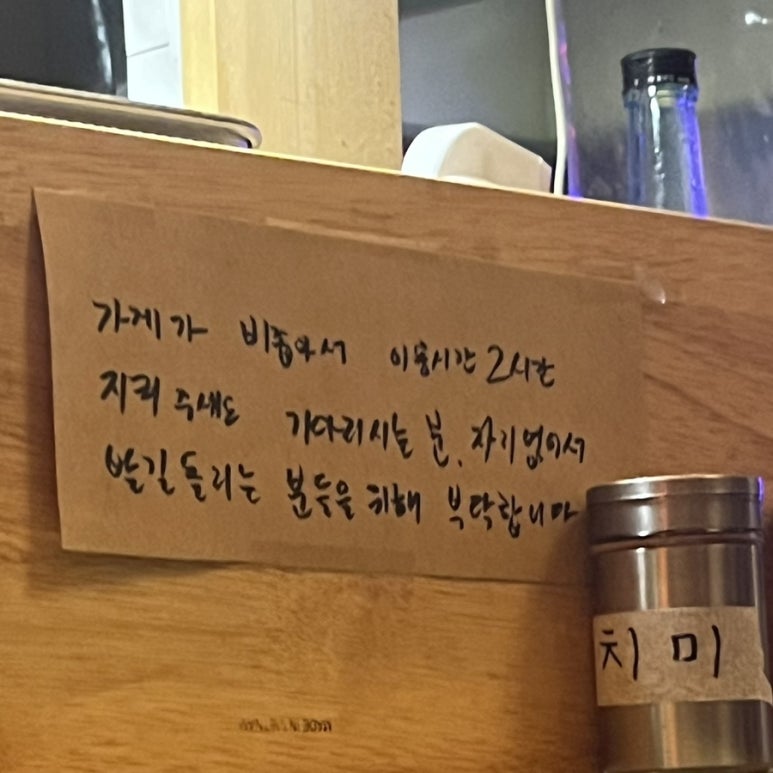 가게가 비좁아서 이용시간 2시간
지켜 주세요 기다리시는 분, 자리없어서
발길 돌리는 분들을 위해 부탁합니다
치미